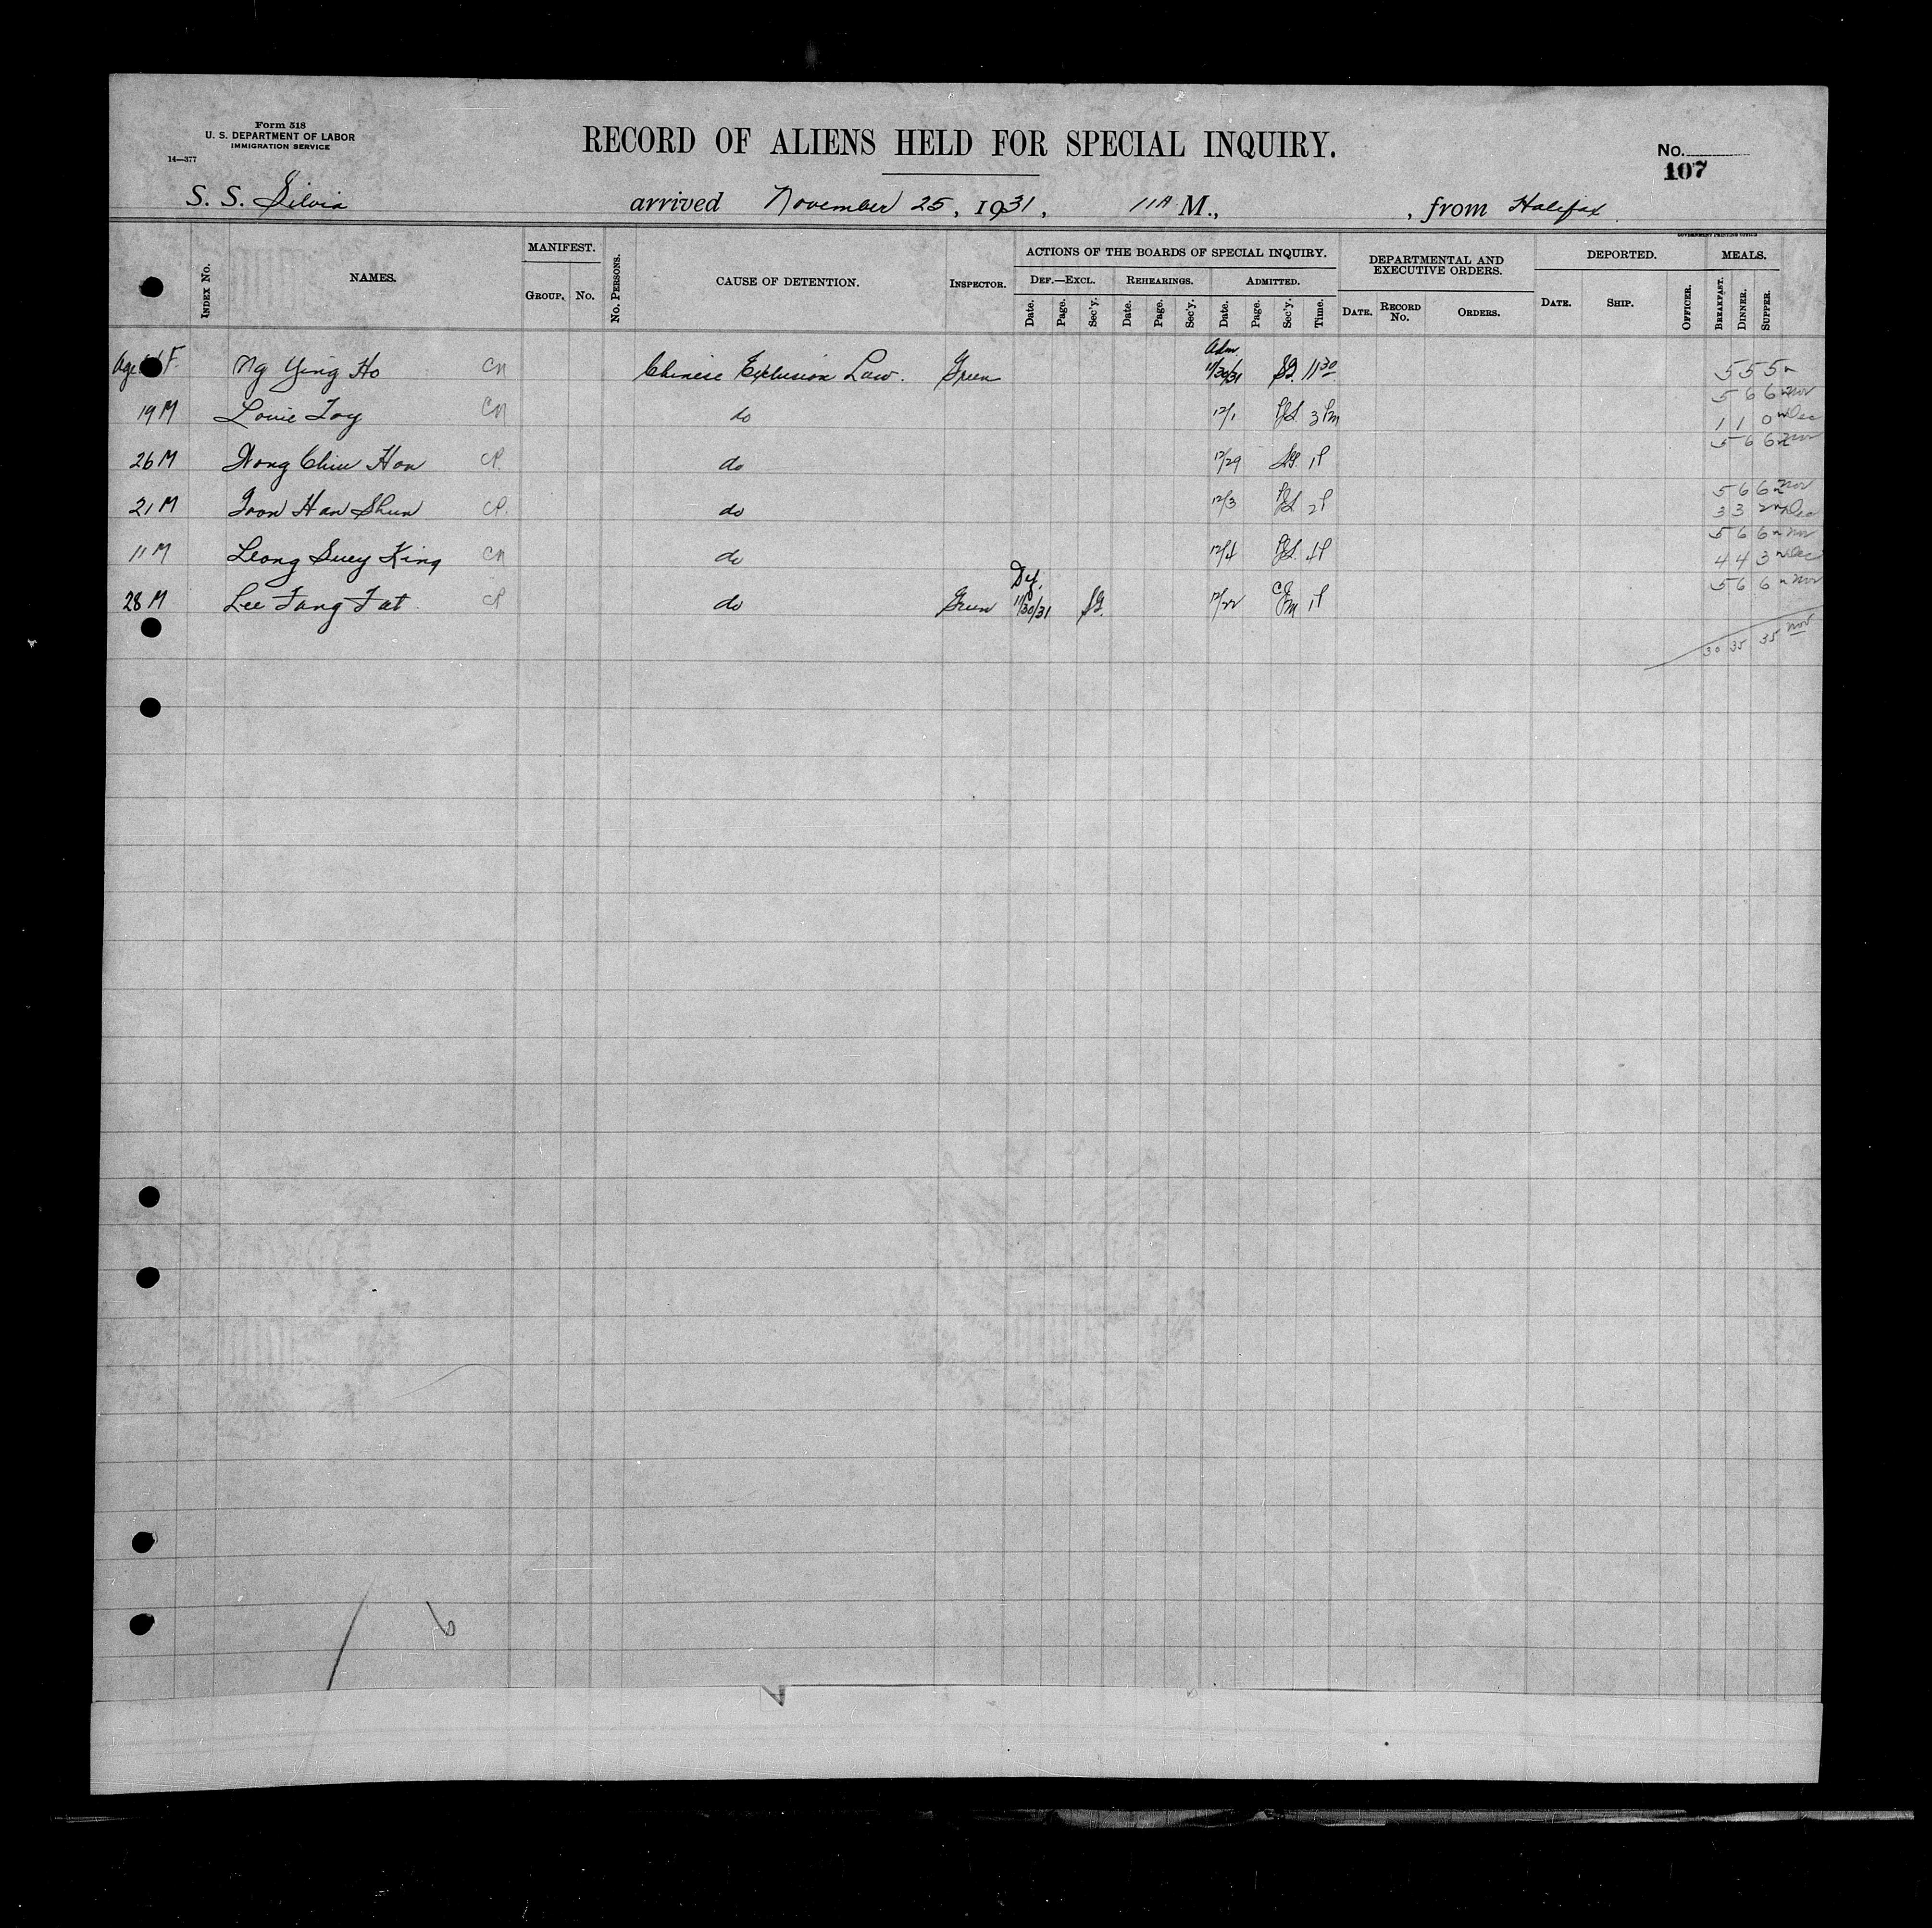 Form 518
U. S. DEPARTMENT OF LABOR
IMMIGRATION SERVICE
14—377
RECORD OF ALIENS HELD FOR SPECIAL INQUIRY.
No.
107
S. S. Silvia arrived November 25, 1931, 11 A M., , from Halifax
GOVERNMENT PRINTING OFFICE
INDEX No. NAMES. MANIFEST. GROUP. No. No. PERSONS. CAUSE OF DETENTION. INSPECTOR. ACTIONS OF THE BOARDS OF SPECIAL INQUIRY. DEF.—EXCL. Date. Page. Sec'y. REHEARINGS. Date. Page. Sec'y. ADMITTED. Date. Page. Sec'y. Time. DEPARTMENTAL AND EXECUTIVE ORDERS. DATE. RECORD No. ORDERS. DEPORTED. DATE. SHIP. OFFICER. MEALS. BREAKFAST. DINNER. SUPPER.
Age F. Ng Ying Ho CN Chinese Exclusion Law. Green Adm. 11/30/31 SG. 11 30 5 5 5 n
5 6 6 n Nov
19 M Louie Toy CN do 12/1 3 Pm 1 1 0 n Dec
5 6 6 n Nov
26 M Wong Chiu Hon CP. do 12/29 SG. 1P
5 6 6 n Nov
21 M Toon Han Shun CP. do 12/3 2P 3 3 2 n Dec
5 6 6 n Nov
11 M Leong Suey King CN do 12/4 4P 4 4 3 n Dec
5 6 6 n Nov
28 M Lee Fang Fat CP do Green Def. 11/30/31 SG. 12/22 1P
30 35 35 Nov
6